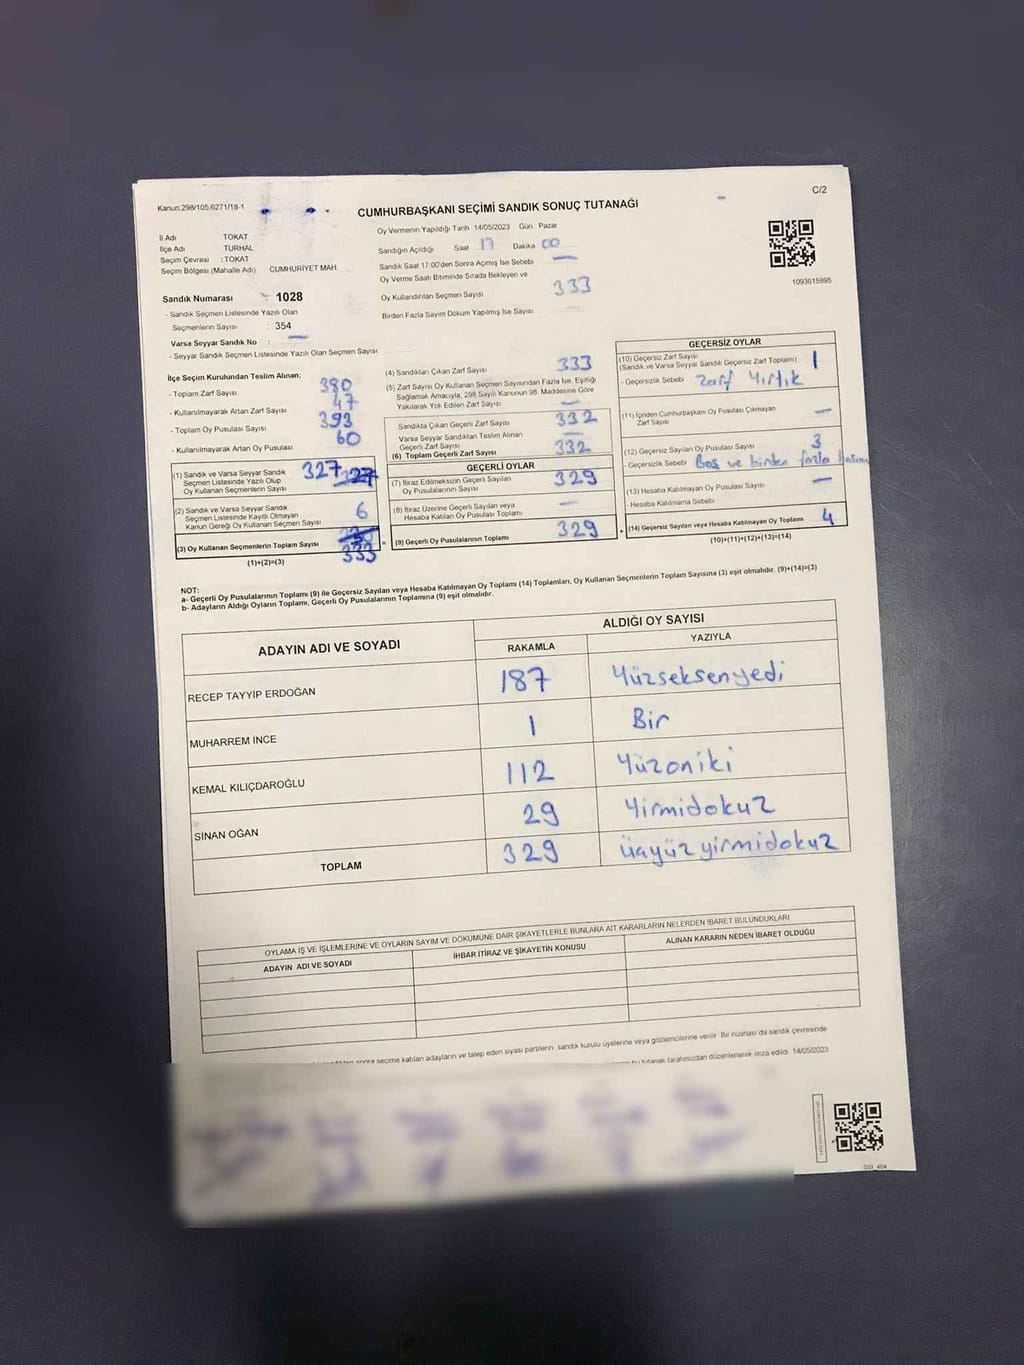 Kanun.298/105,6271/18-1
C/2
CUMHURBAŞKANI SEÇİMİ SANDIK SONUÇ TUTANAĞI
İl Adı TOKAT
İlçe Adı TURHAL
Seçim Çevresi : TOKAT
Seçim Bölgesi (Mahalle Adı) CUMHURİYET MAH.
Sandık Numarası : 1028
- Sandık Seçmen Listesinde Yazılı Olan
Seçmenlerin Sayısı : 354
Varsa Seyyar Sandık No : —
- Seyyar Sandık Seçmen Listesinde Yazılı Olan Seçmen Sayısı
Oy Vermenin Yapıldığı Tarih :14/05/2023 Gün Pazar
Sandığın Açıldığı Saat 17 Dakika 00
Sandık Saat 17:00'den Sonra Açılmış İse Sebebi —
Oy Verme Saati Bitiminde Sırada Bekleyen ve
Oy Kullandırılan Seçmen Sayısı 333
Birden Fazla Sayım Döküm Yapılmış İse Sayısı —
1093615995
İlçe Seçim Kurulundan Teslim Alınan;
- Toplam Zarf Sayısı 380
- Kullanılmayarak Artan Zarf Sayısı 47
- Toplam Oy Pusulası Sayısı 393
- Kullanılmayarak Artan Oy Pusulası 60
(1) Sandık ve Varsa Seyyar Sandık
Seçmen Listesinde Yazılı Olup
Oy Kullanan Seçmenlerin Sayısı 327
(2) Sandık ve Varsa Seyyar Sandık
Seçmen Listesinde Kayıtlı Olmayan
Kanun Gereği Oy Kullanan Seçmen Sayısı 6
(3) Oy Kullanan Seçmenlerin Toplam Sayısı 333
(1)+(2)=(3)
(4) Sandıktan Çıkan Zarf Sayısı 333
(5) Zarf Sayısı Oy Kullanan Seçmen Sayısından Fazla İse, Eşitliği
Sağlamak Amacıyla, 298 Sayılı Kanunun 98. Maddesine Göre
Yakılarak Yok Edilen Zarf Sayısı —
Sandıkta Çıkan Geçerli Zarf Sayısı 332
Varsa Seyyar Sandıktan Teslim Alınan
Geçerli Zarf Sayısı —
(6) Toplam Geçerli Zarf Sayısı 332
GEÇERLİ OYLAR
(7) İtiraz Edilmeksizin Geçerli Sayılan
Oy Pusulalarının Sayısı 329
(8) İtiraz Üzerine Geçerli Sayılan veya
Hesaba Katılan Oy Pusulası Toplamı —
= (9) Geçerli Oy Pusulalarının Toplamı 329
GEÇERSİZ OYLAR
(10) Geçersiz Zarf Sayısı
(Sandık ve Varsa Seyyar Sandık Geçersiz Zarf Toplamı) 1
- Geçersizlik Sebebi Zarf Yırtık
(11) İçinden Cumhurbaşkanı Oy Pusulası Çıkmayan
Zarf Sayısı —
(12) Geçersiz Sayılan Oy Pusulası Sayısı 3
- Geçersizlik Sebebi Boş ve birden fazla
(13) Hesaba Katılmayan Oy Pusulası Sayısı —
- Hesaba Katılmama Sebebi
+ (14) Geçersiz Sayılan veya Hesaba Katılmayan Oy Toplamı 4
(10)+(11)+(12)+(13)=(14)
NOT:
a- Geçerli Oy Pusulalarının Toplamı (9) ile Geçersiz Sayılan veya Hesaba Katılmayan Oy Toplamı (14) Toplamları, Oy Kullanan Seçmenlerin Toplam Sayısına (3) eşit olmalıdır. (9)+(14)=(3)
b- Adayların Aldığı Oyların Toplamı, Geçerli Oy Pusulalarının Toplamına (9) eşit olmalıdır.
ADAYIN ADI VE SOYADI
ALDIĞI OY SAYISI
RAKAMLA YAZIYLA
RECEP TAYYİP ERDOĞAN 187 Yüzseksenyedi
MUHARREM İNCE 1 Bir
KEMAL KILIÇDAROĞLU 112 Yüzoniki
SİNAN OĞAN 29 Yirmidokuz
TOPLAM 329 üçyüzyirmidokuz
OYLAMA İŞ VE İŞLEMLERİNE VE OYLARIN SAYIM VE DÖKÜMÜNE DAİR ŞİKAYETLERLE BUNLARA AİT KARARLARIN NELERDEN İBARET BULUNDUKLARI
ADAYIN ADI VE SOYADI İHBAR İTİRAZ VE ŞİKAYETİN KONUSU ALINAN KARARIN NEDEN İBARET OLDUĞU
sonra seçime katılan adayların ve talep eden siyasi partilerin sandık kurulu üyelerine veya gözlemcilerine verilir. Bir nüshası da sandık çevresinde
bu tutanak tarafımızdan düzenlenerek imza edildi. 14/05/2023